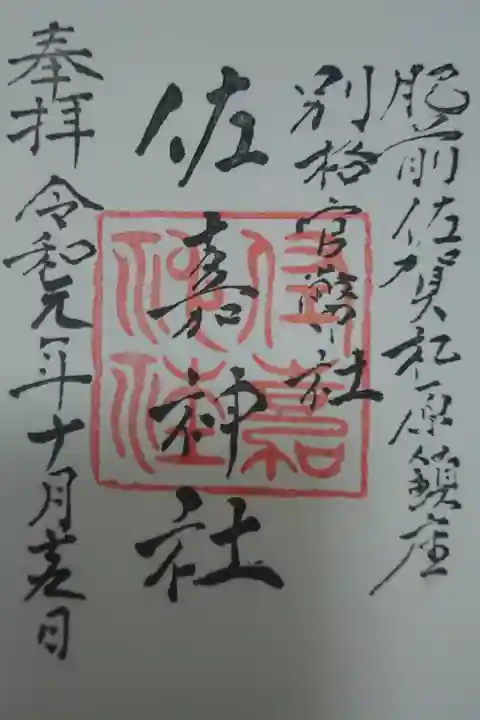 肥前佐賀松原鎮座
別格官幣社
佐嘉神社
奉拝 令和元年十月壱日
佐嘉